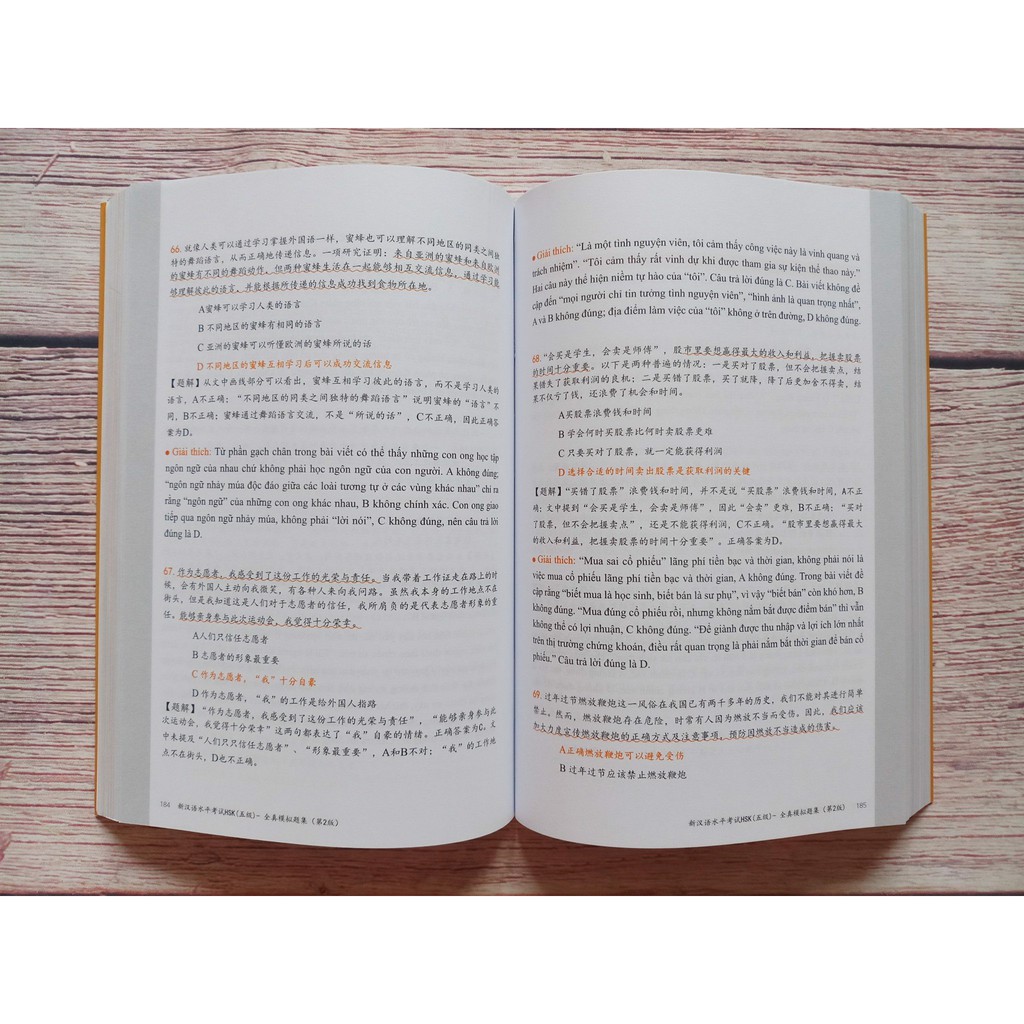 66. 就像人类可以通过学习掌握外国语一样，蜜蜂也可以理解不同地区的同类之间独
特的舞蹈语言，从而正确地传递信息。一项研究证明：来自亚洲的蜜蜂和来自欧洲
的蜜蜂有不同的舞蹈动作，但两种蜜蜂生活在一起能够相互交流信息，通过学习能
够理解彼此的语言，并能根据所传递的信息成功找到食物所在地。
A蜜蜂可以学习人类的语言
B 不同地区的蜜蜂有相同的语言
C 亚洲的蜜蜂可以听懂欧洲的蜜蜂所说的话
D 不同地区的蜜蜂互相学习后可以成功交流信息
【题解】从文中画线部分可以看出，蜜蜂互相学习彼此的语言，而不是学习人类的
语言，A不正确；“不同地区的同类之间独特的舞蹈语言”说明蜜蜂的“语言”不
同，B不正确；蜜蜂通过舞蹈语言交流，不是“所说的话”，C不正确，因此正确答
案为D。
• Giải thích: Từ phần gạch chân trong bài viết có thể thấy những con ong học tập
ngôn ngữ của nhau chứ không phải học ngôn ngữ của con người. A không đúng;
“ngôn ngữ nhảy múa độc đáo giữa các loài tương tự ở các vùng khác nhau” chỉ ra
rằng “ngôn ngữ” của những con ong khác nhau, B không chính xác. Con ong giao
tiếp qua ngôn ngữ nhảy múa, không phải “lời nói”, C không đúng, nên câu trả lời
đúng là D.
67. 作为志愿者，我感受到了这份工作的光荣与责任。当我带着工作证走在路上的时
候，会有外国人主动向我微笑，有各种人来向我问路。虽然我本身的工作地点不在
街头，但是我知道这是人们对于志愿者的信任，我所肩负的是代表志愿者形象的重
任。能够亲身参与此次运动会，我觉得十分荣幸。
A人们只信任志愿者
B 志愿者的形象最重要
C 作为志愿者，“我”十分自豪
D 作为志愿者，“我”的工作是给外国人指路
【题解】“作为志愿者，我感受到了这份工作的光荣与责任”，“能够亲身参与此
次运动会，我觉得十分荣幸”这两句都表达了“我”自豪的情绪。正确答案为C。文
中未提及“人们只只信任志愿者”、“形象最重要”，A和B不对；“我”的工作地
点不在街头，D也不正确。
184 新汉语水平考试HSK(五级)- 全真模拟题集（第2版）
• Giải thích: “Là một tình nguyện viên, tôi cảm thấy công việc này là vinh quang và
trách nhiệm”. “Tôi cảm thấy rất vinh dự khi được tham gia sự kiện thể thao này.”
Hai câu này thể hiện niềm tự hào của “tôi”. Câu trả lời đúng là C. Bài viết không đề
cập đến “mọi người chỉ tin tưởng tình nguyện viên”, “hình ảnh là quan trọng nhất”,
A và B không đúng; địa điểm làm việc của “tôi” không ở trên đường, D không đúng.
68. “会买是学生，会卖是师傅”，股市里要想赢得最大的收入和利益，把握卖股票
的时间十分重要。以下是两种普遍的情况：一是买对了股票，但不会把握卖点，结
果错失了获取利润的良机；二是买错了股票，买了就降，降了后更加舍不得卖，结
果不仅亏了钱，还浪费了机会和时间。
A买股票浪费钱和时间
B 学会何时买股票比何时卖股票更难
C 只要买对了股票，就一定能获得利润
D 选择合适的时间卖出股票是获取利润的关键
【题解】“买错了股票”浪费钱和时间，并不是说“买股票”浪费钱和时间，A不正
确；文中提到“会买是学生，会卖是师傅”，因此“会卖”更难，B不正确；“买对
了股票，但不会把握卖点”，还是不能获得利润，C不正确。“股市里要想赢得最大
的收入和利益，把握卖股票的时间十分重要”。正确答案为D。
• Giải thích: “Mua sai cổ phiếu” lãng phí tiền bạc và thời gian, không phải nói là
việc mua cổ phiếu lãng phí tiền bạc và thời gian, A không đúng. Trong bài viết đề
cập rằng “biết mua là học sinh, biết bán là sư phụ”, vì vậy “biết bán” còn khó hơn, B
không đúng. “Mua đúng cổ phiếu rồi, nhưng không nắm bắt được điểm bán” thì vẫn
không thể có lợi nhuận, C không đúng. “Để giành được thu nhập và lợi ích lớn nhất
trên thị trường chứng khoán, điều rất quan trọng là phải nắm bắt thời gian để bán cổ
phiếu.” Câu trả lời đúng là D.
69. 过年过节燃放鞭炮这一风俗在我国已有两千多年的历史，我们不能对其进行简单
禁止。然而，燃放鞭炮存在危险，时常有人因为燃放不当而受伤。因此，我们应该
加大力度宣传燃放鞭炮的正确方式及注意事项，预防因燃放不当造成的伤害。
A正确燃放鞭炮可以避免受伤
B 过年过节应该禁止燃放鞭炮
新汉语水平考试HSK(五级)- 全真模拟题集（第2版） 185